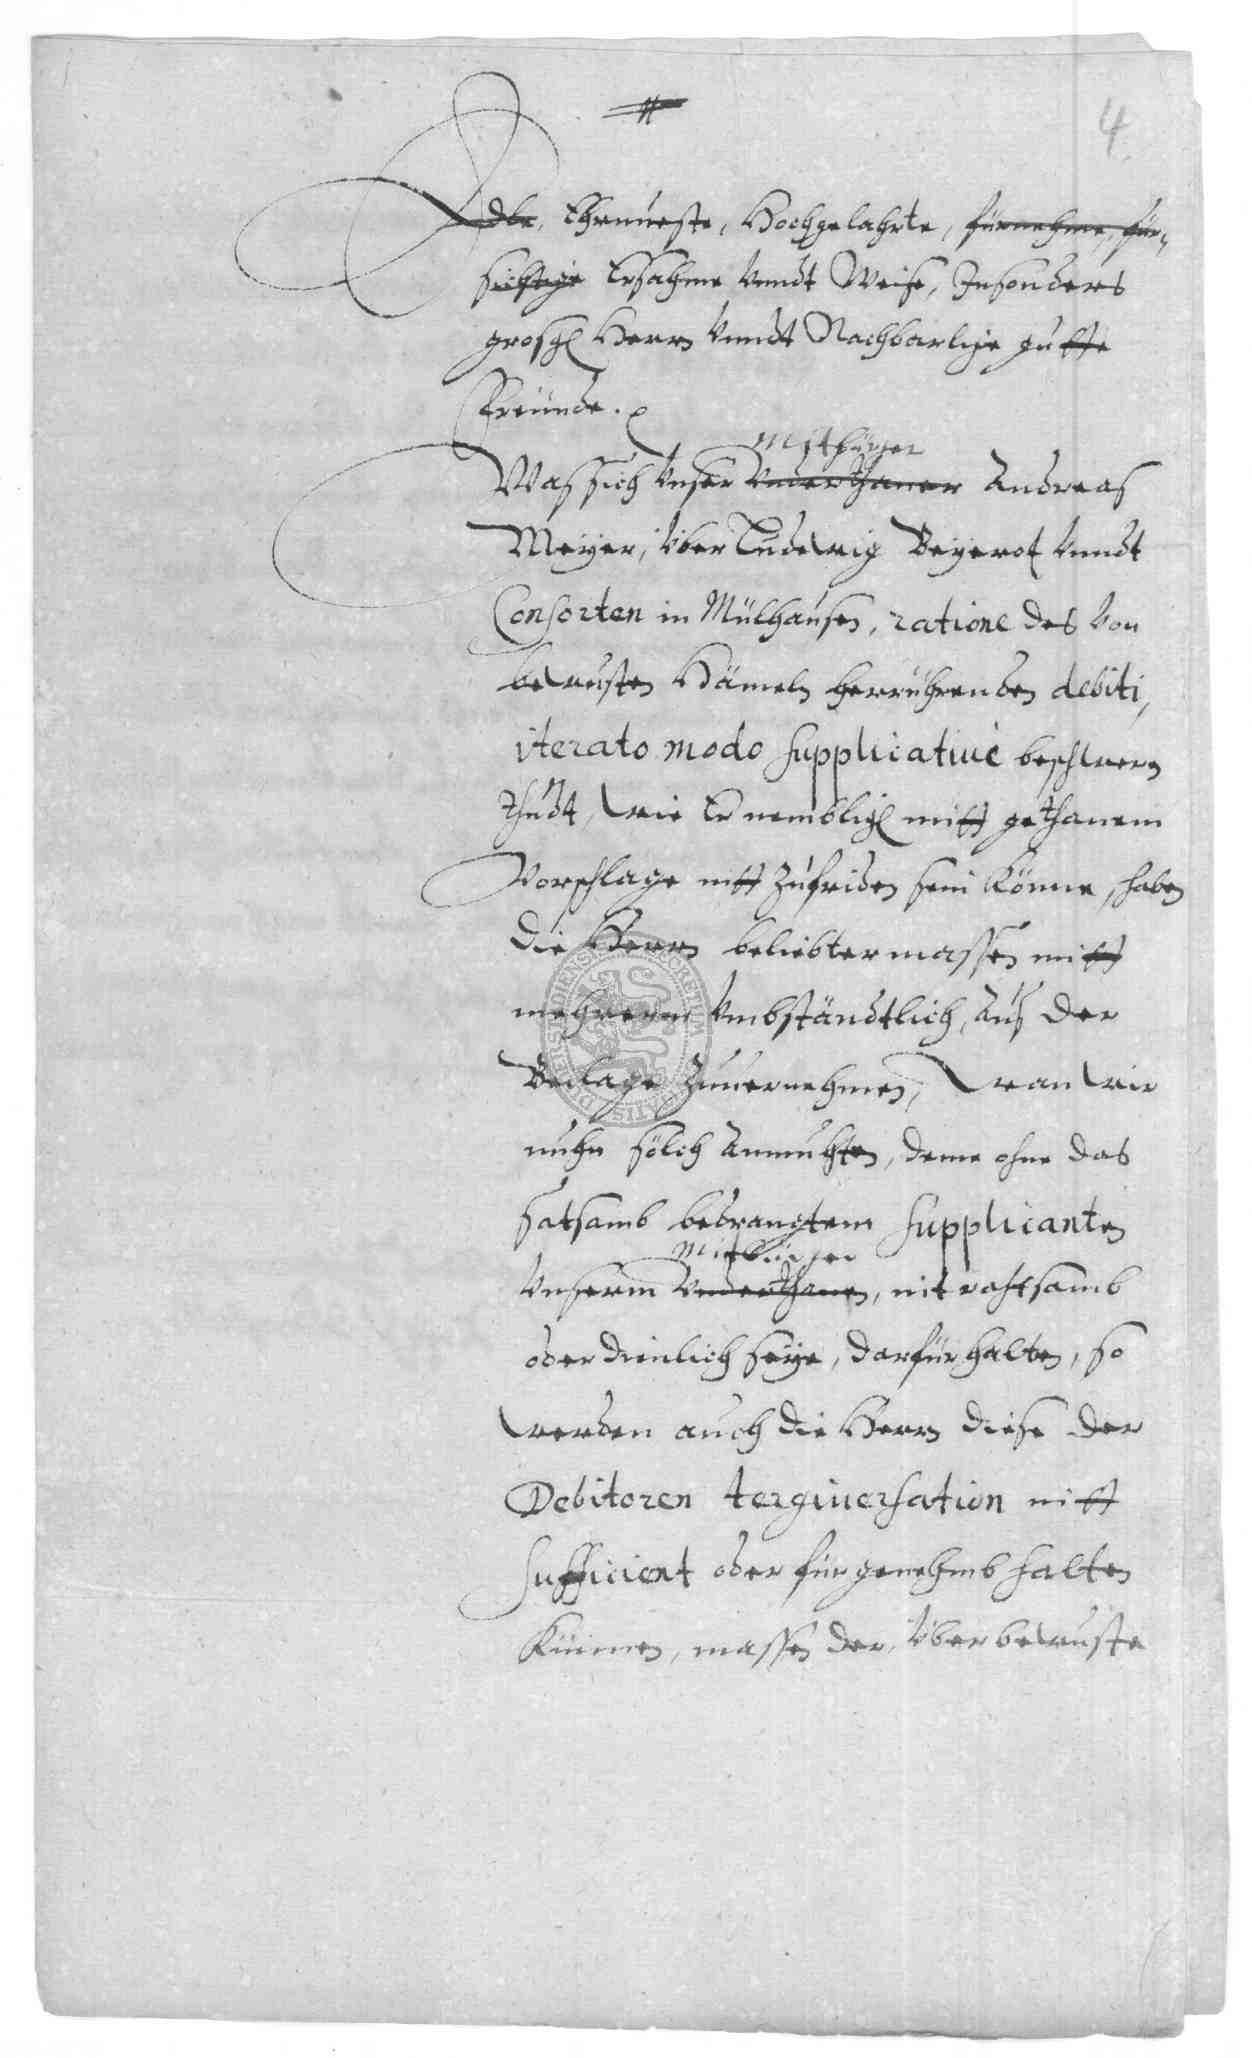 4
Edle, Ehrnueste, Hochgelahrte, fürnehme, für-
sichtige Ersahme Vnndt Weise, Insonders
grosgl Herrn Vnndt Nachbarliche gutte
Freünde.
Mitbürger
Was sich Vnser Vnderthaner Andreas
Meyer, über Ludewig Beyerot Vnndt
Consorten in Mülhausen, ratione des von
bewusten Hämeln herrührenden debiti,
iterato modo supplicativè beschwern
thudt, wie Er nemblich mitt gethanem
Vorschlage nitt zufriden sein könne, haben
die Herrn beliebter massen mitt
mehrerm Vmbständtlich, aus der
Beilage Zuuernehmen, wan wir
nuhn solch anmuhten, deme ohne das
satsamb bedrangtem Supplicanten
Mitbürger
Vnserm Vnderthanen, nit rahtsamb
oder dienlich seye, darfür halten, so
werden auch die Herrn diese der
Debitoren tergiuersation nitt
sufficient oder für genehmb halten
können, massen der über bewuste